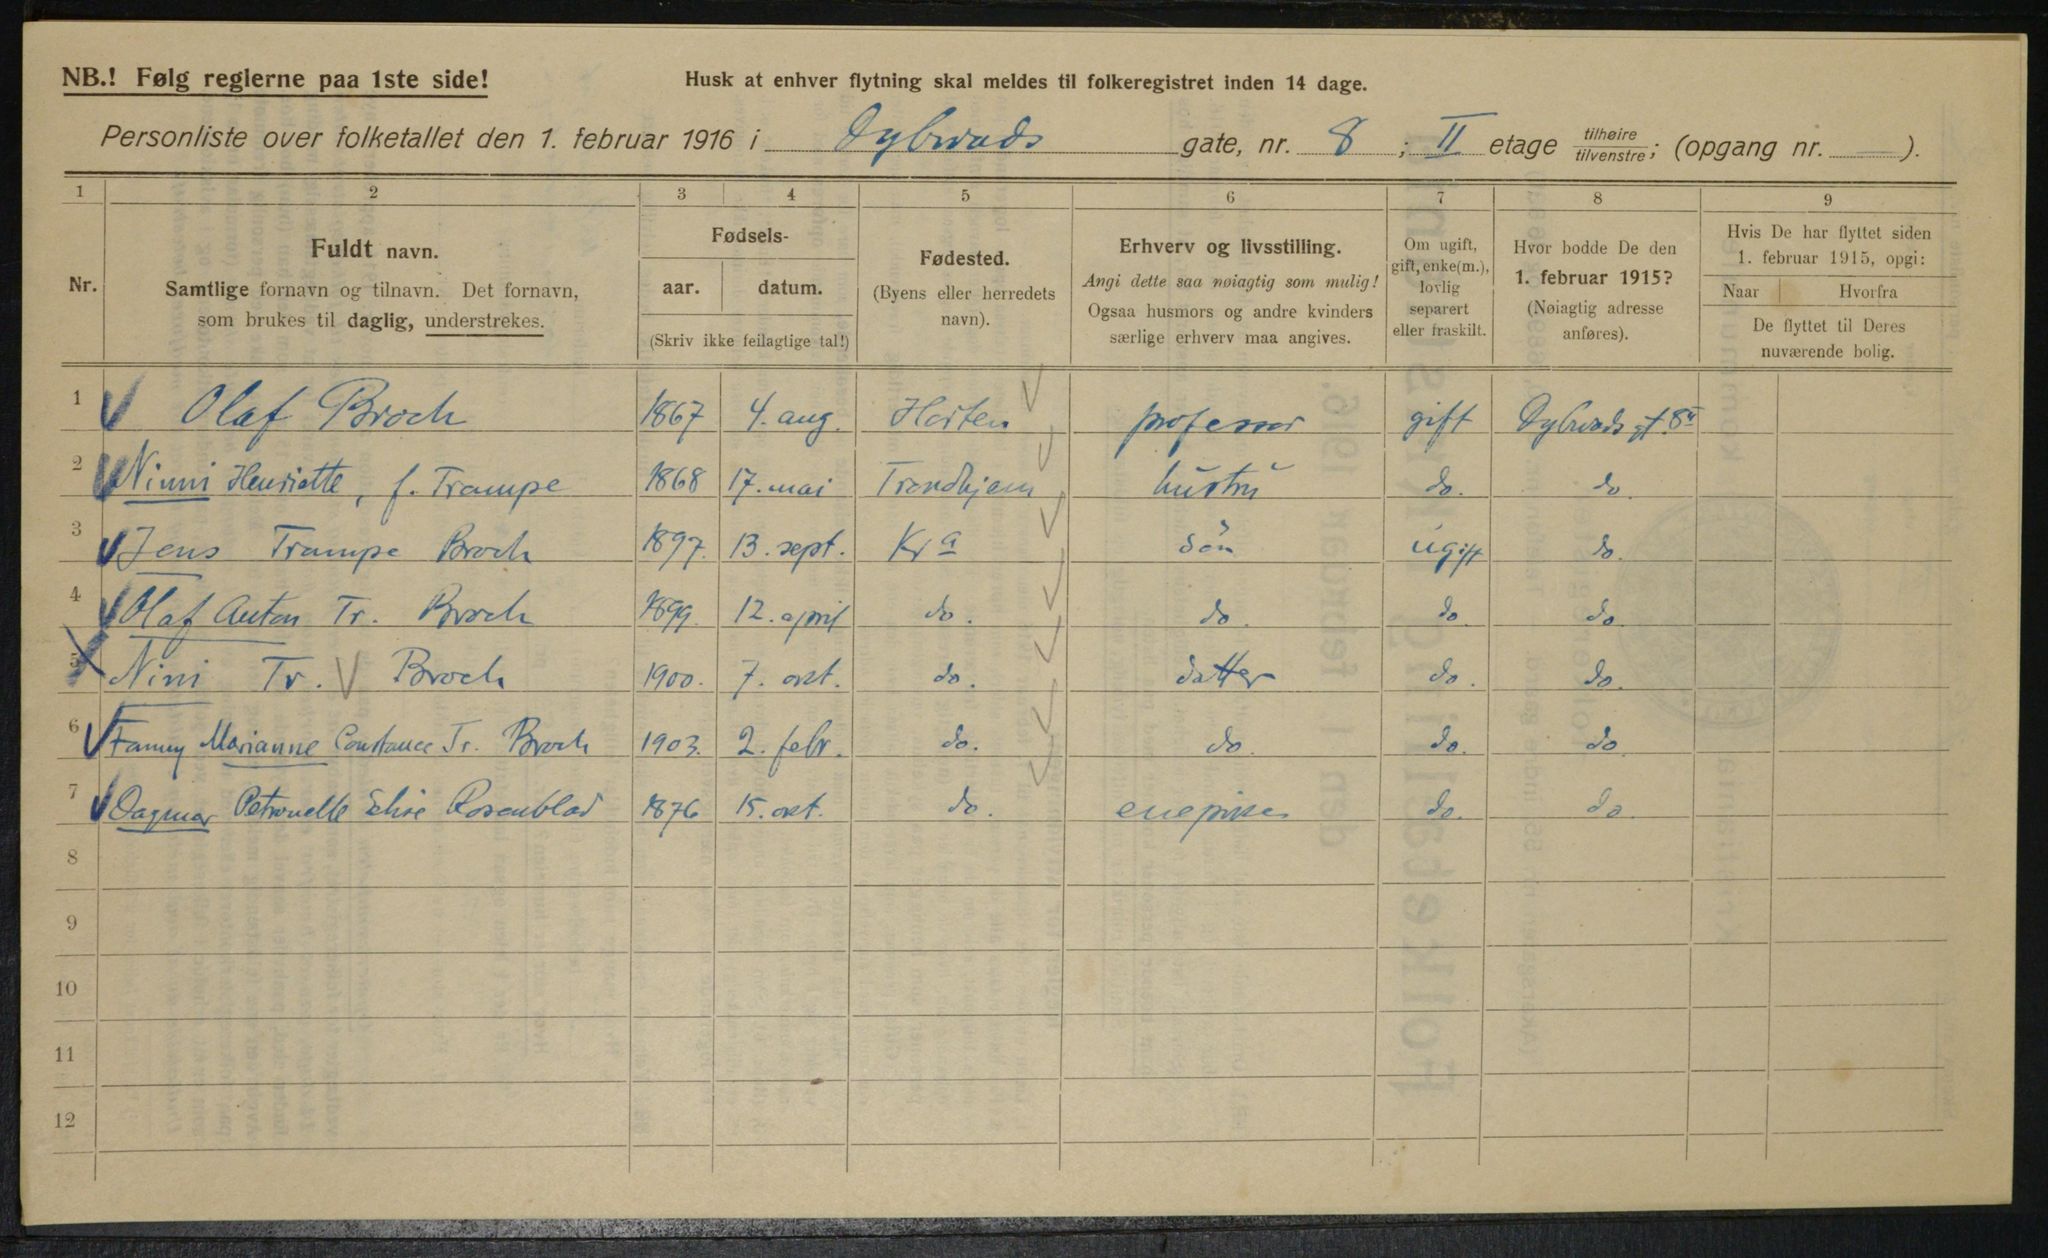 NB.! Følg reglerne paa 1ste side!
Husk at enhver flytning skal meldes til folkeregistret inden 14 dage.
Personliste over folketallet den 1. februar 1916 i Dybwads gate, nr. 8 ; II etage tilhøire/tilvenstre; (opgang nr. — ).
1 2 3 4 5 6 7 8 9
Nr.
Fuldt navn.
Samtlige fornavn og tilnavn. Det fornavn,
som brukes til daglig, understrekes.
Fødsels-
aar. datum.
(Skriv ikke feilagtige tal!)
Fødested.
(Byens eller herredets
navn).
Erhverv og livsstilling.
Angi dette saa nøiagtig som mulig!
Ogsaa husmors og andre kvinders
særlige erhverv maa angives.
Om ugift,
gift, enke(m.),
lovlig
separert
eller fraskilt.
Hvor bodde De den
1. februar 1915?
(Nøiagtig adresse
anføres).
Hvis De har flyttet siden
1. februar 1915, opgi:
Naar Hvorfra
De flyttet til Deres
nuværende bolig.
1 Olaf Broch 1867 4. aug. Horten professor gift Dybwads gt. 8 II
2 Ninni Henriette, f. Trampe 1868 17. mai Trondhjem hustru do. do.
3 Jens Trampe Broch 1897. 13. sept. Kr a søn ugift do.
4 Olaf Anton Tr. Broch 1899. 12. april do. do. do. do.
5 Nini Tr. Broch 1900. 7. okt. do. datter do. do.
6 Fanny Marianne Constance Tr. Broch 1903. 2. febr. do. do. do. do.
7 Dagmar Petronelle Elise Rosenblad 1876 15. okt. do. enepike do. do.
8
9
10
11
12